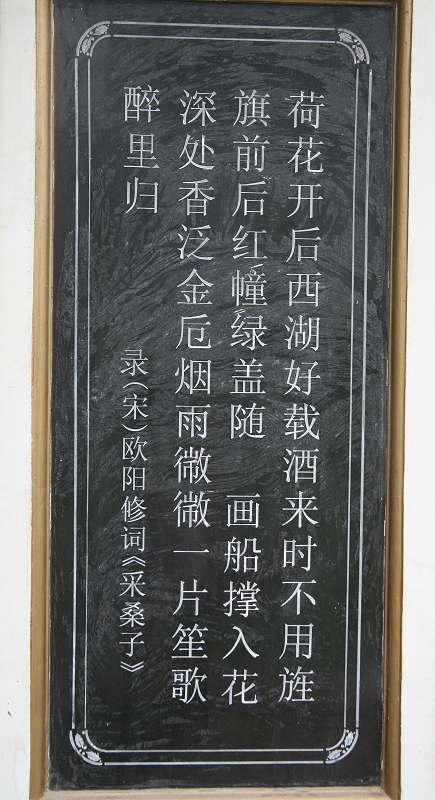 荷花开后西湖好载酒来时不用旌
旗前后红幢绿盖随 画船撑入花
深处香泛金卮烟雨微微一片笙歌
醉里归
录(宋)欧阳修词《采桑子》